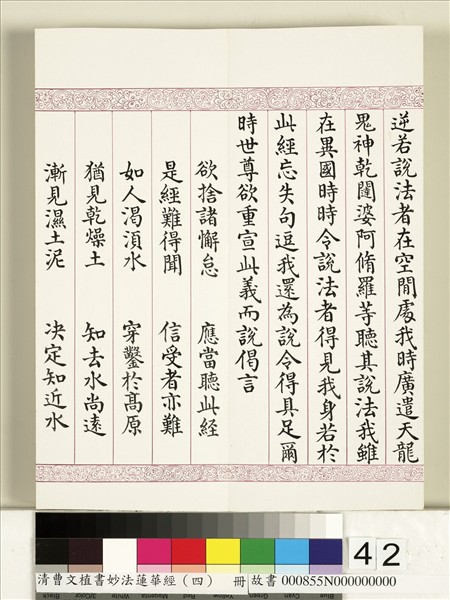 逆若說法者在空閒處我時廣遣天龍
鬼神乾闥婆阿脩羅等聽其說法我雖
在異國時時令說法者得見我身若於
此經忘失句逗我還為說令得具足爾
時世尊欲重宣此義而說偈言
欲捨諸懈怠 應當聽此經
是經難得聞 信受者亦難
如人渴湏水 穿鑿於高原
猶見乾燥土 知去水尚遠
漸見濕土泥 决定知近水
42
清曹文植書妙法蓮華經(四) 冊 故書 000855N000000000